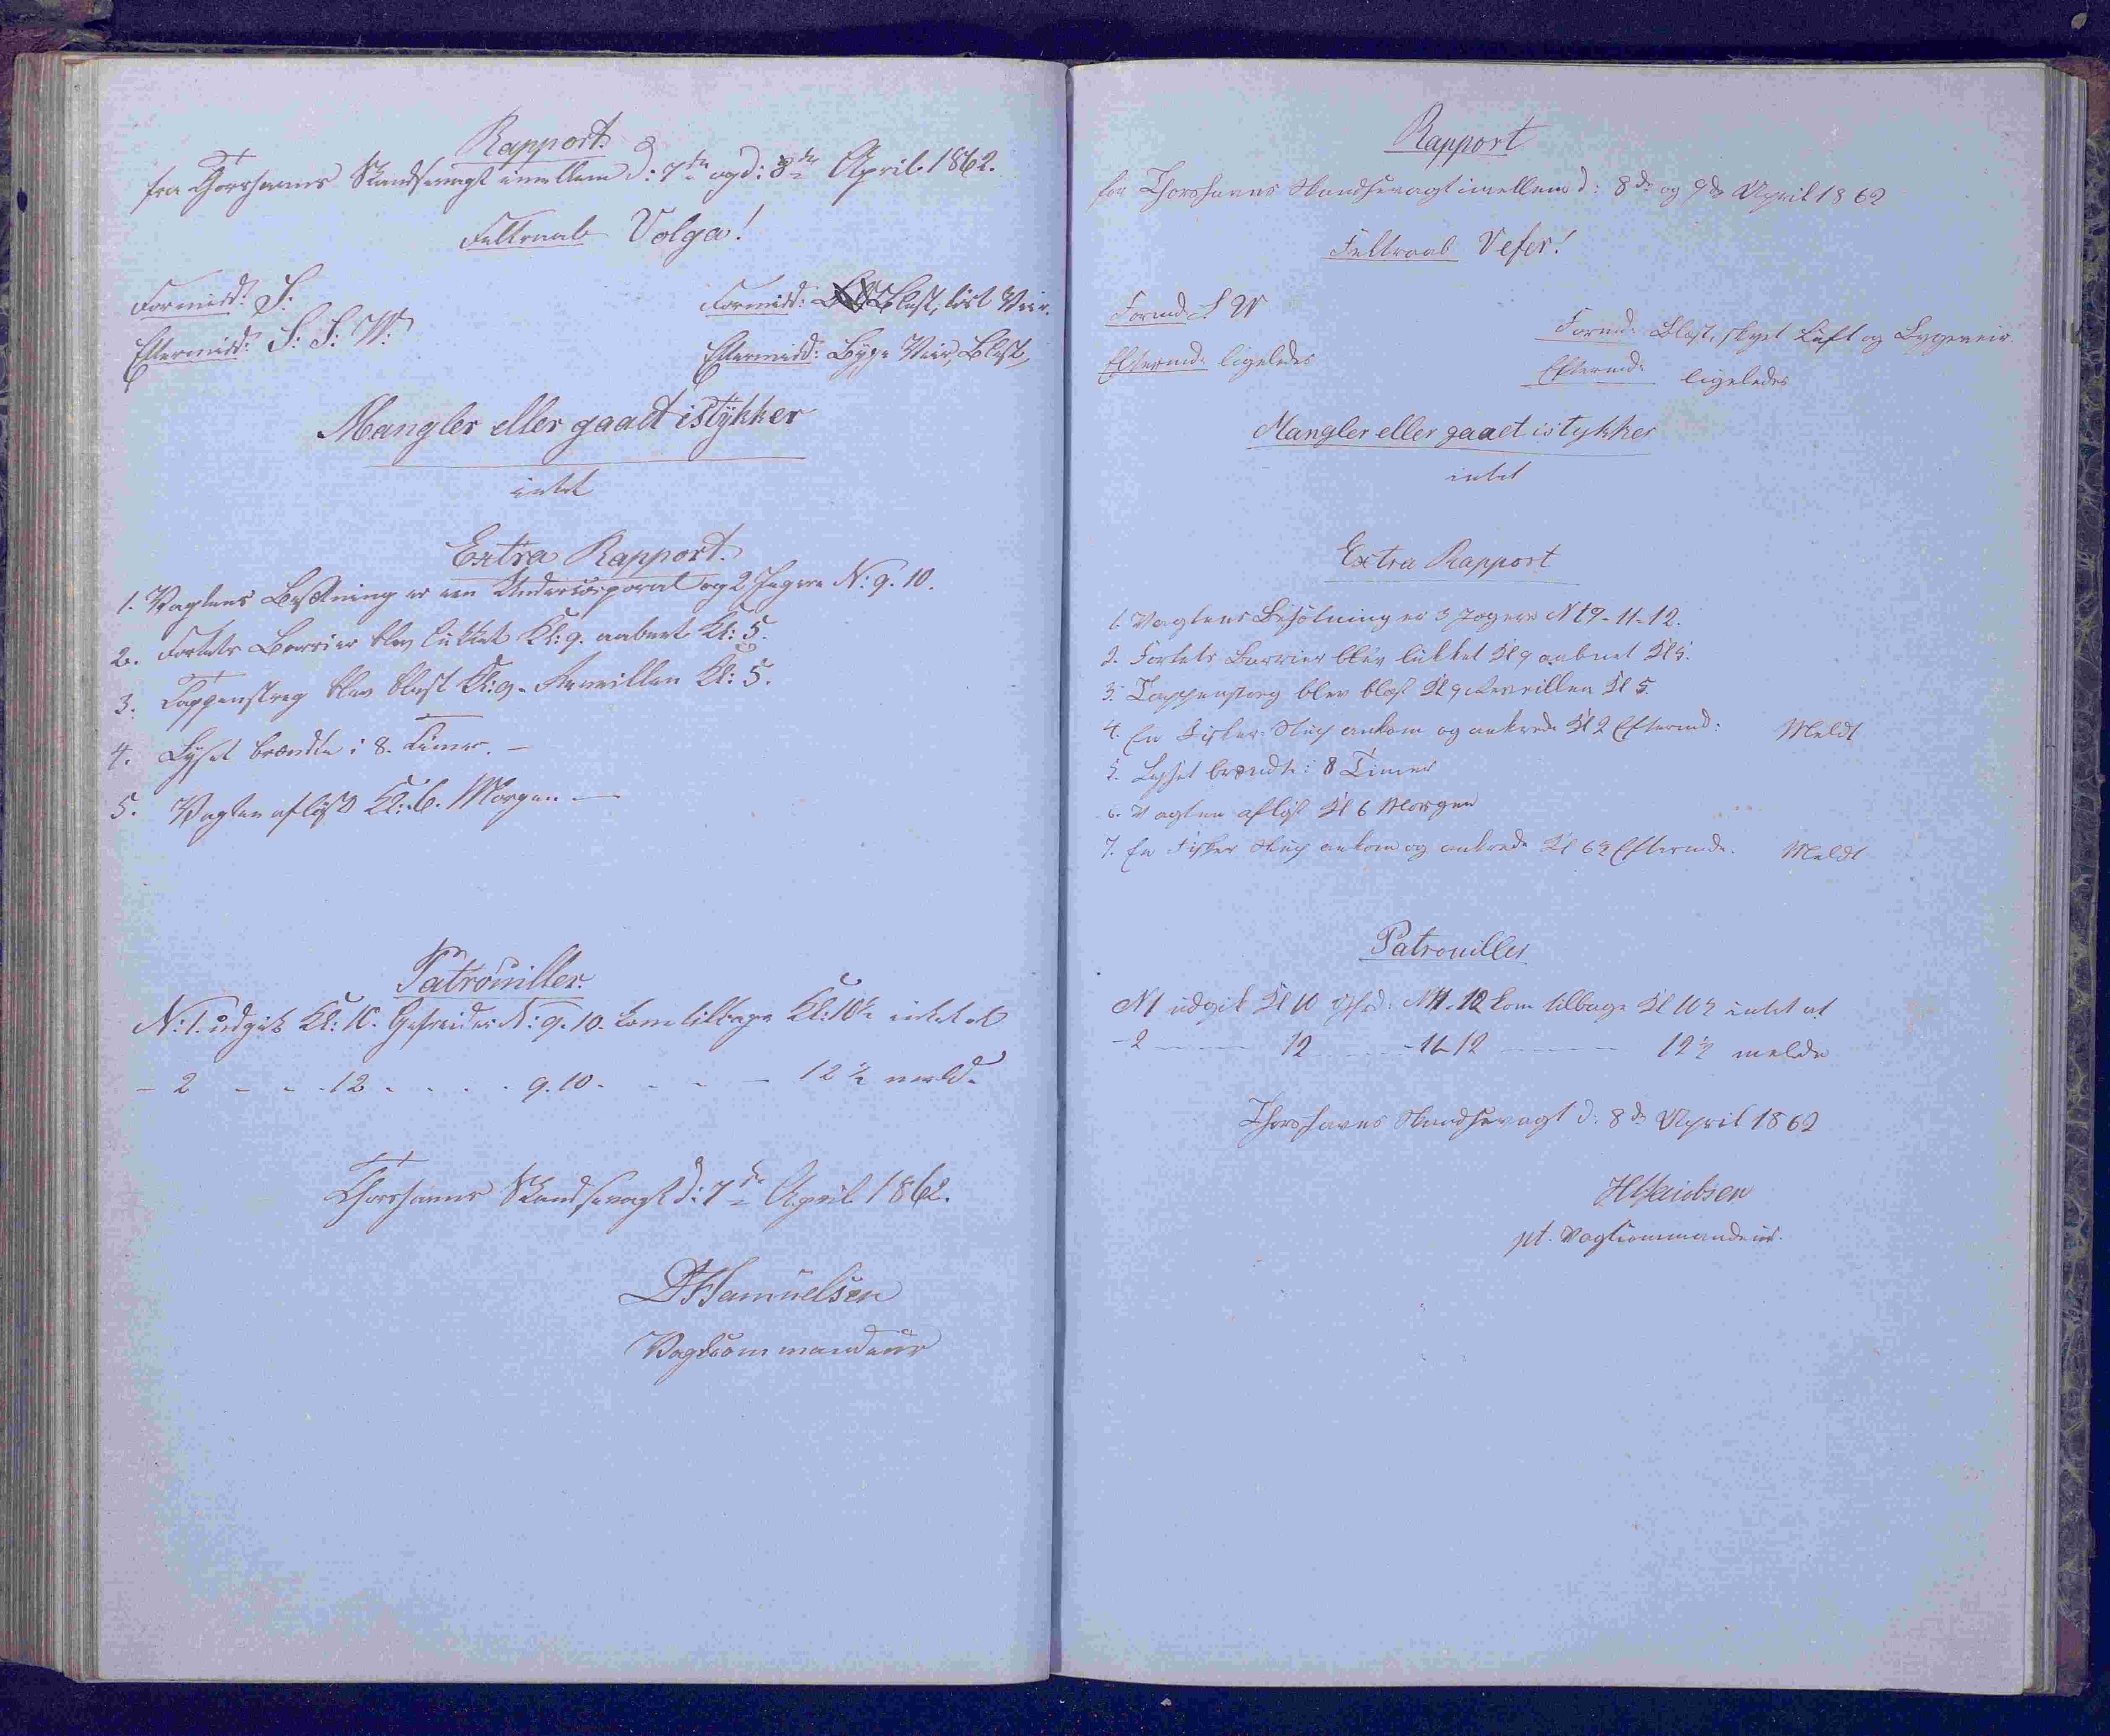 Rapport
fra Thorshavns Skandsevagt imellem d: 7de og d: 8de April 1862.
Feltraab Volga!
Formidd: S:
Formidd: Blæst, tøit Veir.
Eftermidd: S: S: W:
Eftermidd: Byge Veir, Blæst,
Mangler eller gaaet istÿkker
intet
Extra Rapport.
1. Vagtens Besætning er een Undercorporal og 2 Jægere N: 9. 10.
2. Fortets Barrier blev lukket Kl: 9. aabnet Kl: 5.
3. Tappenstreg blev blæst Kl: 9. Reveillen Kl: 5.
4. Lyset brændte i 8. Timer. —
5. Vagten afløst Kl: 6. Morgen —
Patrouiller.
N: 1. udgik Kl: 10. Gefreider N: 9. 10. kom tilbage Kl: 10½ intet at
— 2 - - . 12 . . . . 9. 10. - - - 12½ meld.
Thorshavns Skandsevagt d: 7de April 1862.
Samuelsen
Vagtcommandeur
Rapport
for Thorshavns Skandsevagt imellem d: 8de og 9de April 1862
Feltraab Vefer!
Formd S W
Formd: Blæst, skyet Luft og Bygeveir.
Eftermd: ligeledes
Eftermd: ligeledes
Mangler eller gaaet istykker
intet
Extra Rapport
1. Vagtens Besætning er 3 Jægere N 19-11-12.
2. Fortets Barrier blev lukket Kl 9 aabnet Kl 5.
3. Tappenstreg blev blæst Kl 9 Reveillen Kl 5.
4. En Fisker Slup ankom og ankrede Kl 2 Eftermd: Meldt
5. Lyset brændte i 8 Timer
6. Vagten afløst Kl 6 Morgen
7. En Fisker Slup ankom og ankrede Kl 6½ Eftermd. Meldt
Patrouiller
N1 udgik Kl 10 Gefrd: N 11. 12 kom tilbage Kl 10½ intet at
- 2 ---- 12 ---- 11-12 ---- 12½ melde
Thorshavns Skandsevagt d: 8de April 1862
HJacobsen
pt. Vagtcommandeur.